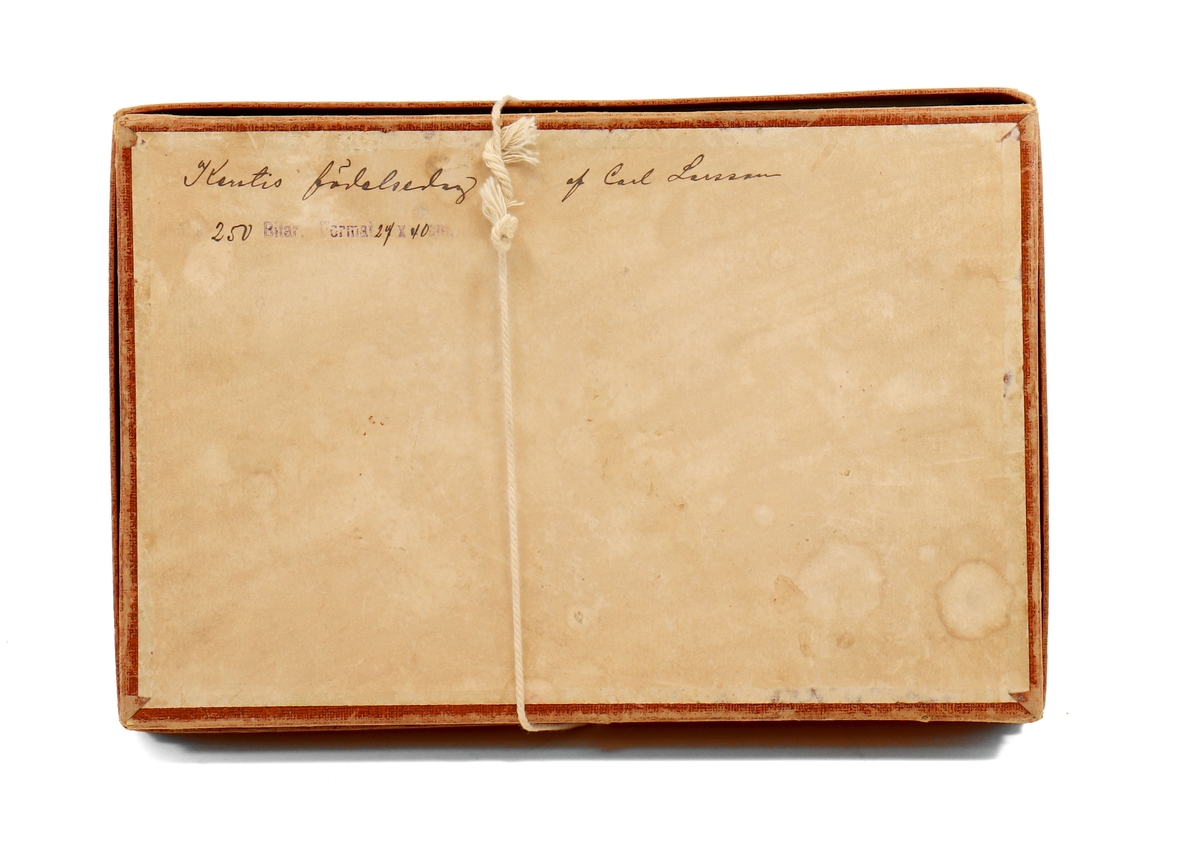 Kerstis födelsedag af Carl Larsson
250 Bitar. Format 27 x 40 cm.